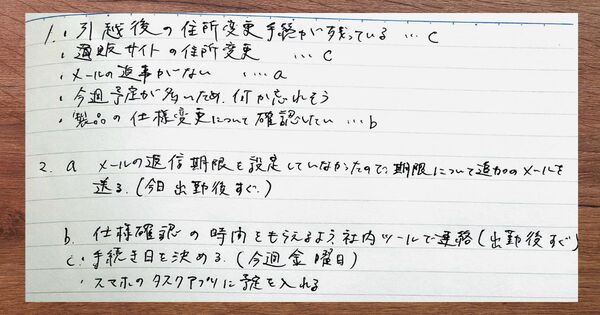 1. ・引越後の住所変更手続が残っている … c
・通販サイトの住所変更 … c
・メールの返事がない … a
・今週予定が多いため、何か忘れそう
・製品の仕様変更について確認したい … b
2. a メールの返信期限を設定していなかたので、期限について追加のメールを
送る。(今日出勤後すぐ。)
b. 仕様確認の時間をもらえるよう、社内ツールで連絡(出勤後すぐ)
c. ・手続き日を決める。(今週金曜日)
・スマホのタスクアプリに予定を入れる